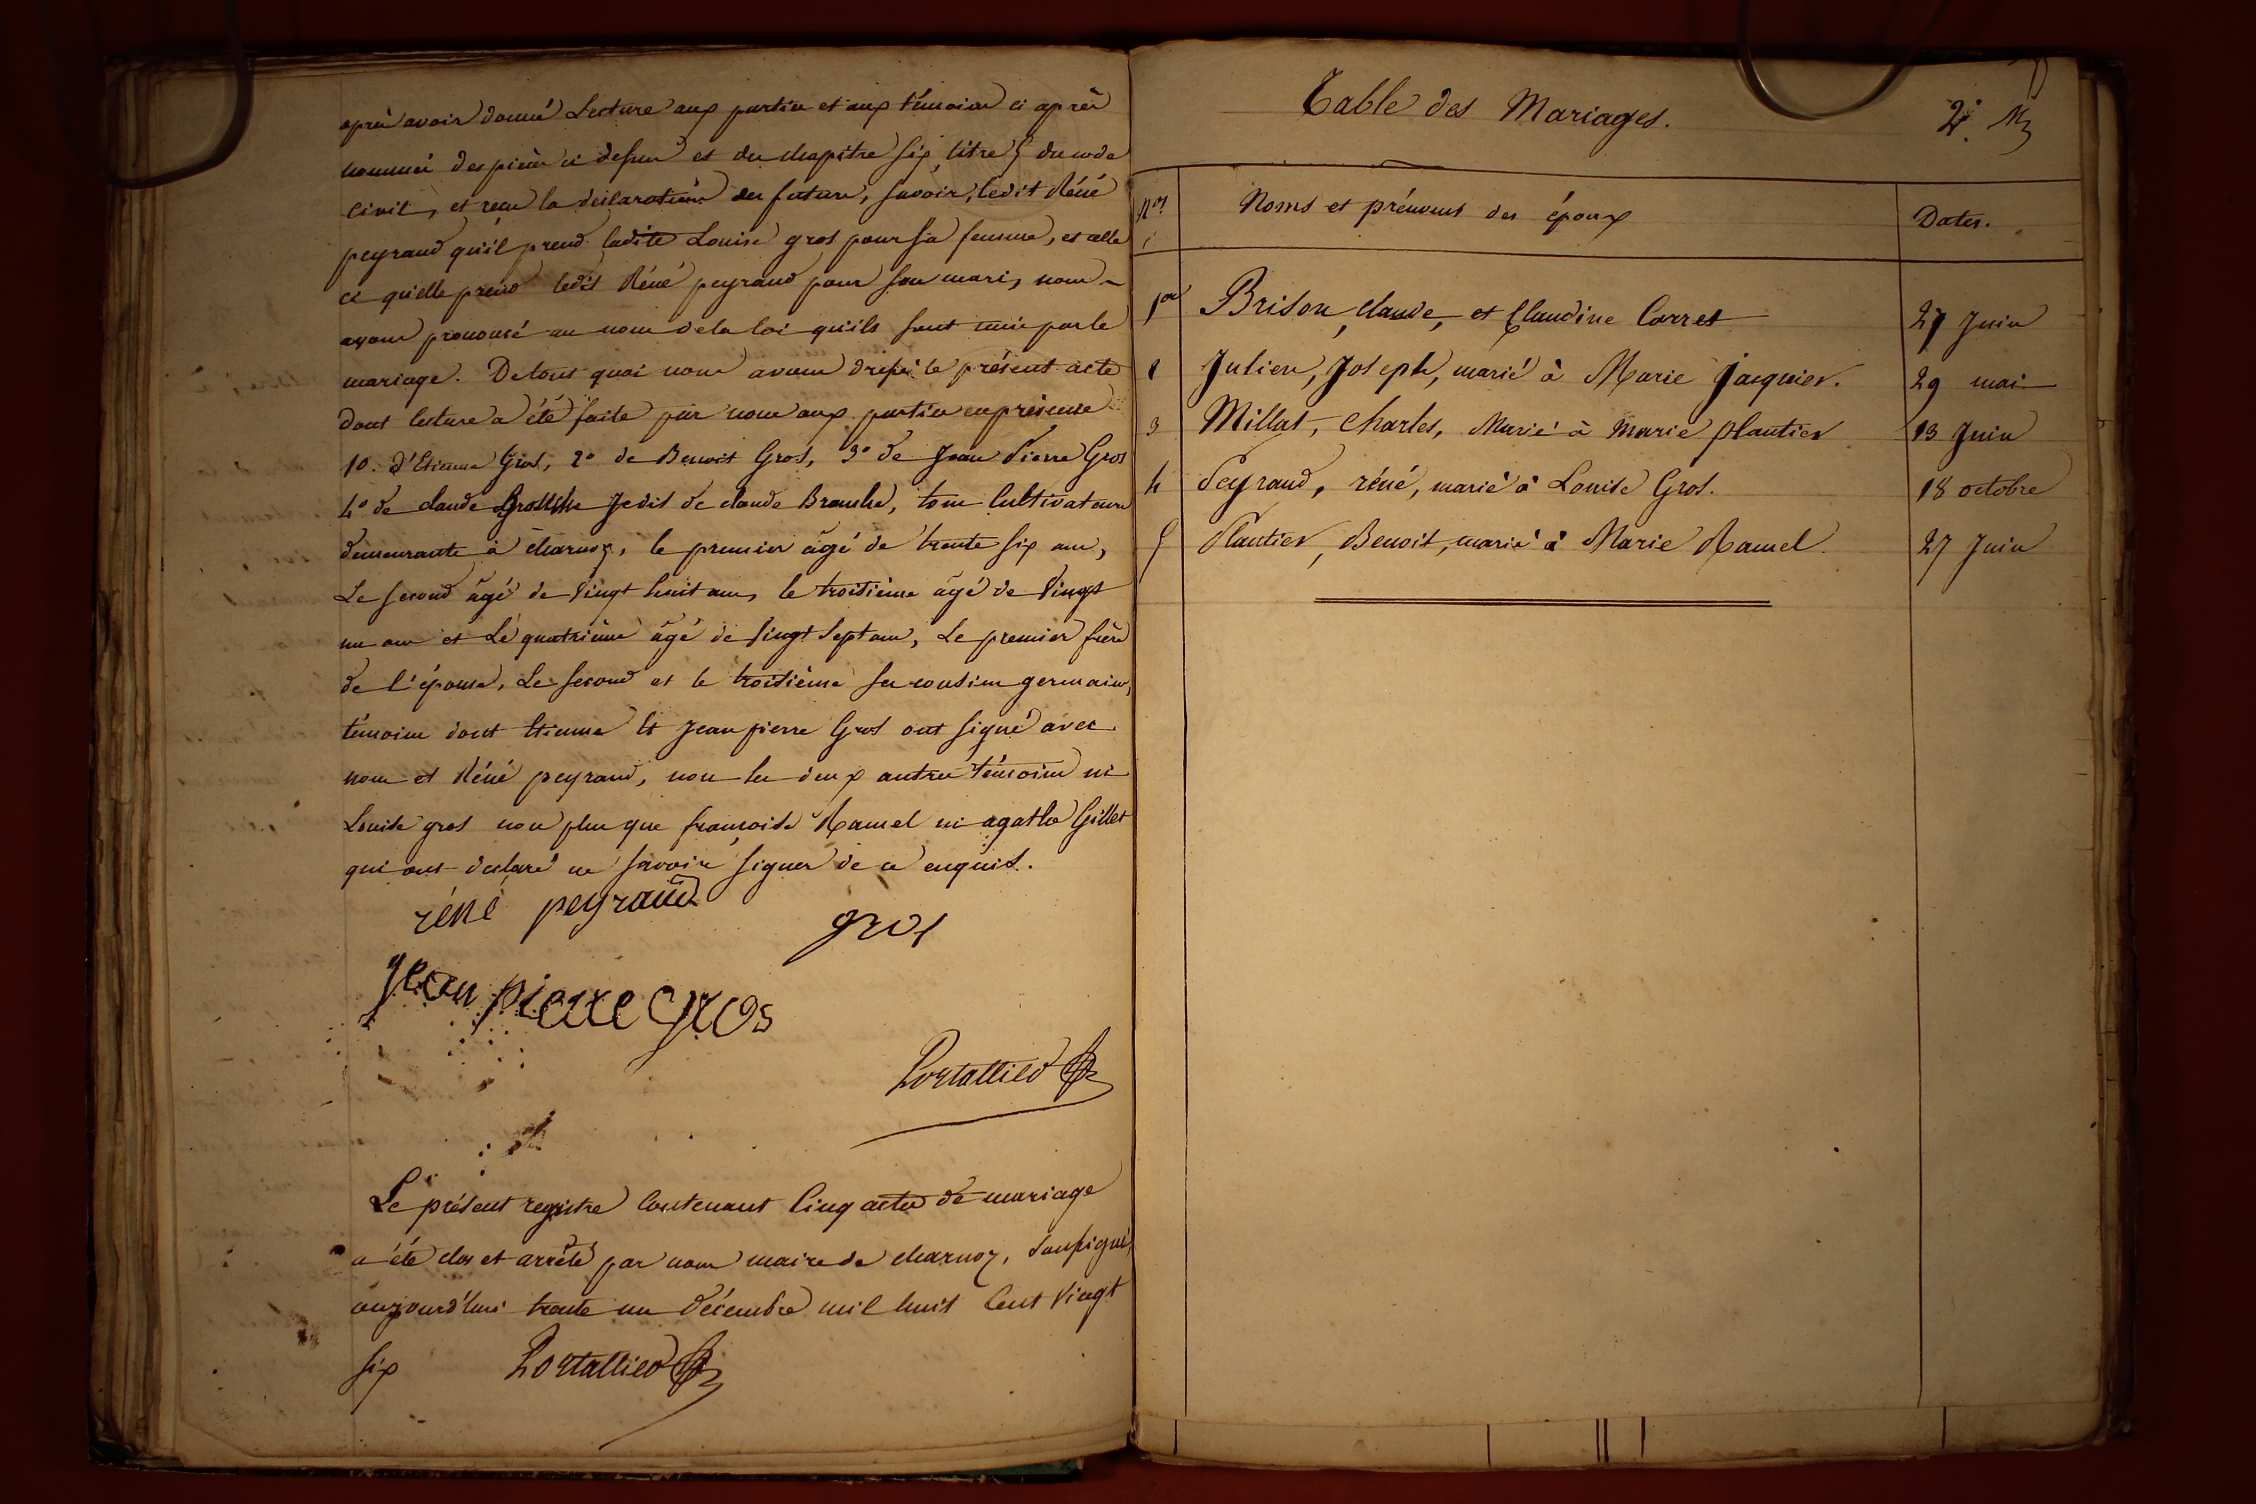 après avoir donné Lecture aux parties et aux témoins ci après
nommés des pièces ci dessus et du chapitre six, titre 5 du code
Civil, et reçu la déclaration des futurs, savoir, ledit Réné
peyraud qu'il prend ladite Louise gros pour sa femme, et celle
ci qu'elle prend ledit Réné peyraud pour son mari, nous
avons prononcé au nom de la loi qu'ils sont unis par le
mariage. De tout quoi nous avons dressé le présent acte
dont lecture a été faite par nous aux parties en présence
1o. d'Etienne Gros, 2o de Benoit Gros, 3o de Jean Pierre Gros
4o de claude Jedit de claude Branche, tous Cultivateurs
demeurants à charnoz, le premier âgé de trente six ans,
Le second âgé de Vingt huit ans, le troisième âgé de Vingt
un ans et Le quatrième âgé de Vingt Sept ans, Le premier frère
de l'épouse, Le second et le troisième ses cousins germains,
témoins dont Etienne et Jean pierre Gros ont signé avec
nous et Réné peyraud, non les deux autres témoins ni
Louise gros non plus que francoise Ramel ni agathe Gillet
qui ont declaré ne savoir signer de ce enquis.
réné peyraud
gros
Jean pierre Gros
Portallier
Le présent registre Contenant Cinq actes de mariage
a été clos et arrêté par nous maire de charnoz, Soussigné,
aujourd'hui trente un décembre mil huit Cent Vingt
six Portallier
Table des Mariages.
2.
Nos Noms et prénoms des époux Dates.
1er Brison, claude, et Claudine Corret 27 Juin
2 Julien, Joseph, marié à Marie Jacquier. 29 mai
3 Millat, Charles, Marié à Marie Plantier 13 Juin
4 Peyraud, réné, marié à Louise Gros. 18 octobre
5 Plantier, Benoit, marié à Marie Ramel. 27 Juin